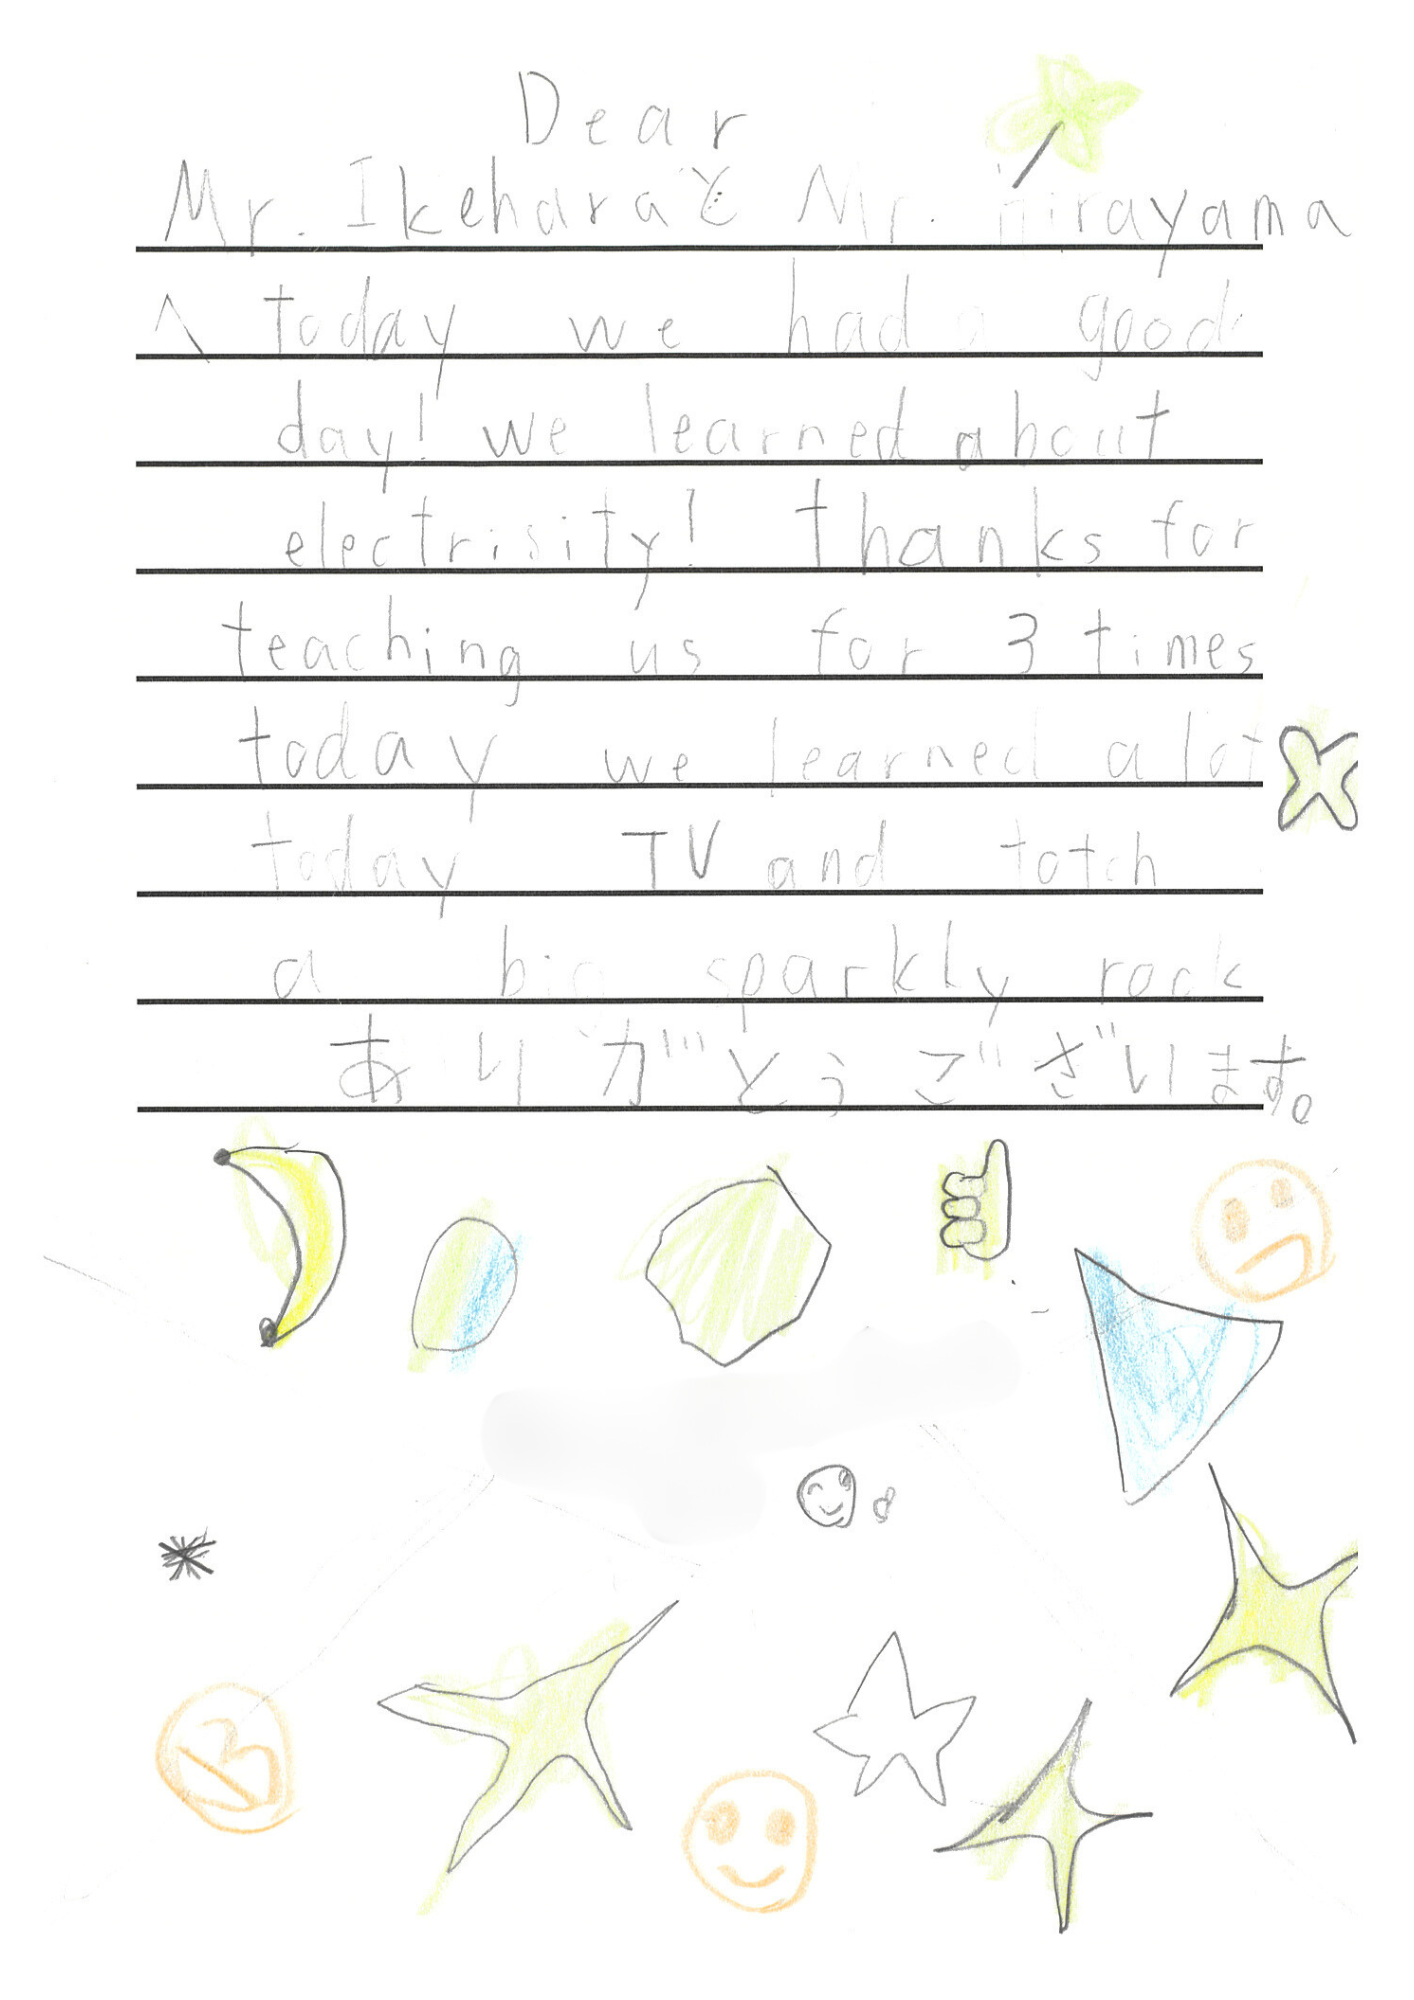 Dear
Mr. Ikeharaと Mr. Hirayama
へ today we had a good
day! we learned about
electrisity! thanks for
teaching us for 3 times
today we learned a lot
today TV and totch
a big sparkly rock
ありがとうございます。